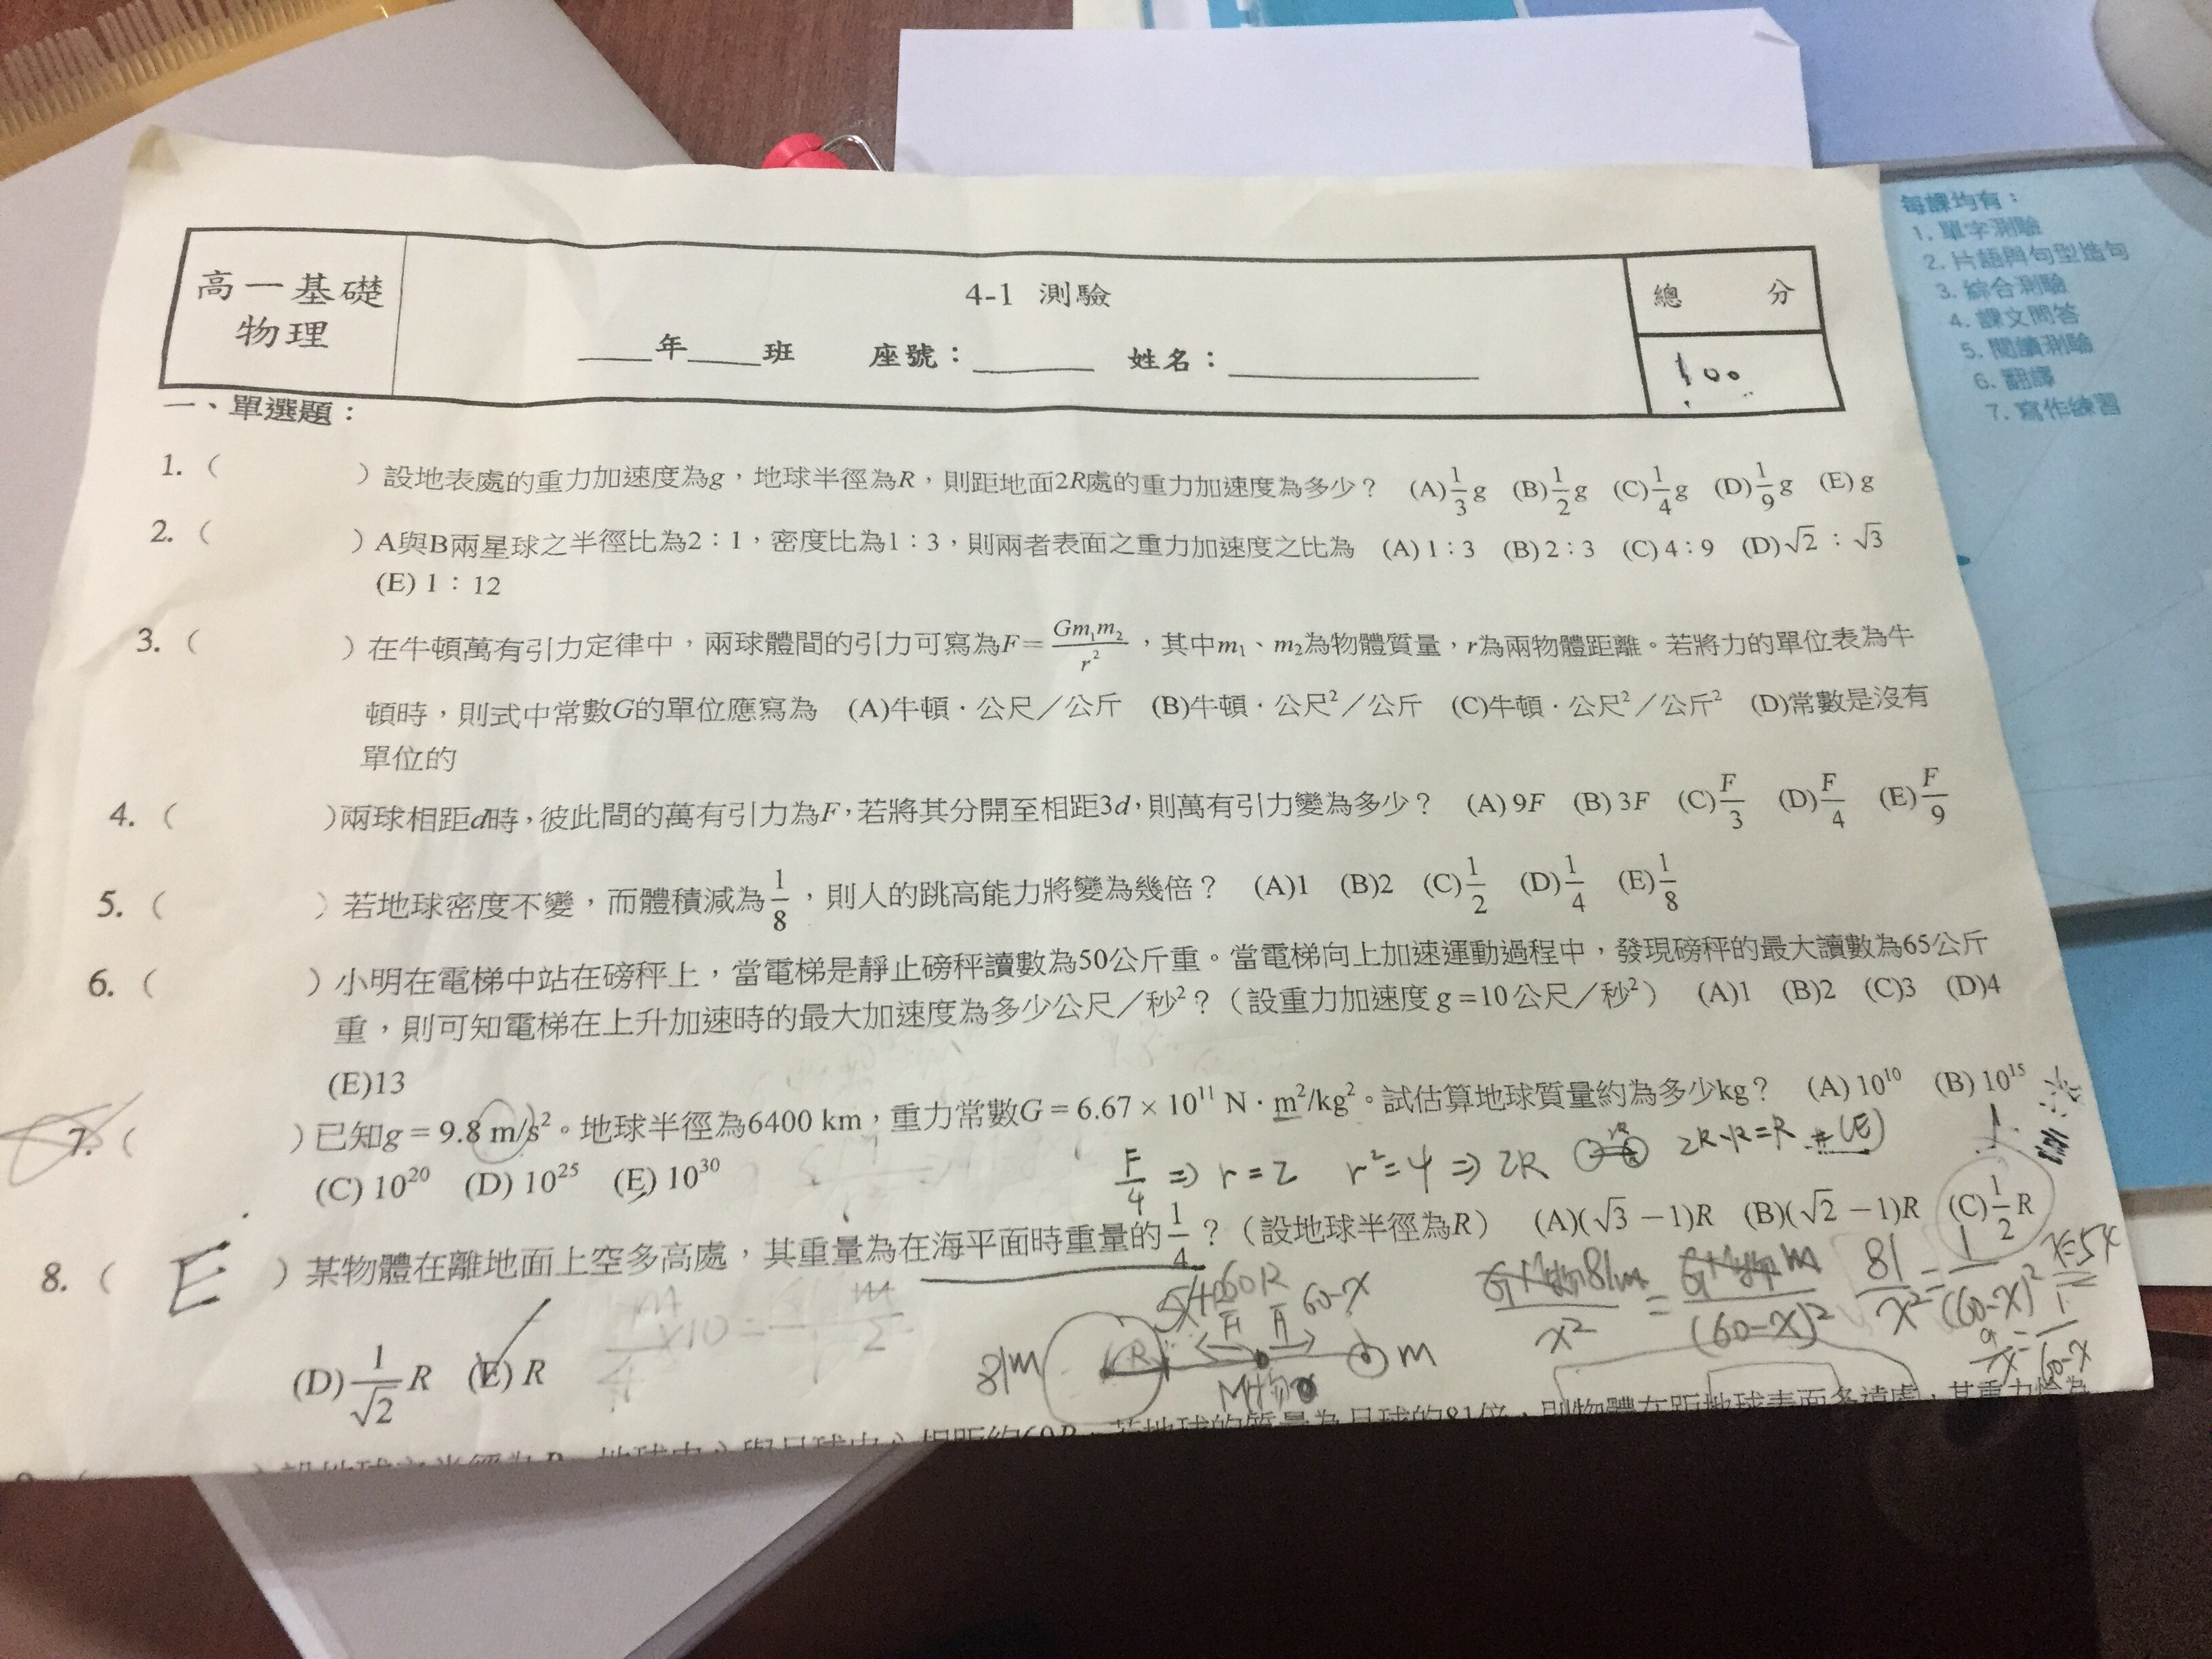 高一基礎
物理
4-1 測驗
____年____班 座號：______ 姓名：____________
總 分
100
一、單選題：
1. （ ）設地表處的重力加速度為g，地球半徑為R，則距地面2R處的重力加速度為多少？ (A)1/3 g (B)1/2 g (C)1/4 g (D)1/9 g (E) g
2. （ ）A與B兩星球之半徑比為2：1，密度比為1：3，則兩者表面之重力加速度之比為 (A) 1：3 (B) 2：3 (C) 4：9 (D)√2：√3
(E) 1：12
3. （ ）在牛頓萬有引力定律中，兩球體間的引力可寫為F=Gm₁m₂/r²，其中m₁、m₂為物體質量，r為兩物體距離。若將力的單位表為牛
頓時，則式中常數G的單位應寫為 (A)牛頓．公尺／公斤 (B)牛頓．公尺²／公斤 (C)牛頓．公尺²／公斤² (D)常數是沒有
單位的
4. （ ）兩球相距d時，彼此間的萬有引力為F，若將其分開至相距3d，則萬有引力變為多少？ (A) 9F (B) 3F (C)F/3 (D)F/4 (E)F/9
5. （ ）若地球密度不變，而體積減為1/8，則人的跳高能力將變為幾倍？ (A)1 (B)2 (C)1/2 (D)1/4 (E)1/8
6. （ ）小明在電梯中站在磅秤上，當電梯是靜止磅秤讀數為50公斤重。當電梯向上加速運動過程中，發現磅秤的最大讀數為65公斤
重，則可知電梯在上升加速時的最大加速度為多少公尺／秒²？（設重力加速度 g =10 公尺／秒²） (A)1 (B)2 (C)3 (D)4
(E)13
7. （ ）已知g = 9.8 m/s²。地球半徑為6400 km，重力常數G = 6.67 × 10¹¹ N · m²/kg²。試估算地球質量約為多少kg？ (A) 10¹⁰ (B) 10¹⁵
(C) 10²⁰ (D) 10²⁵ (E) 10³⁰
F/4 ⇒ r=2 r²=4 ⇒ 2R 2R-R=R #(E)
8. （ E ）某物體在離地面上空多高處，其重量為在海平面時重量的1/4？（設地球半徑為R） (A)(√3 −1)R (B)(√2 −1)R (C)1/2 R
(D)1/√2 R (E) R
81m R 60-x m
81m/x² = m/(60-x)² 81/x² = 1/(60-x)²
9/x = 1/60-x
設地球之半徑為R，地球中心與月球中心相距約60R，若地球的質量為月球的81倍，則物體在距地球表面多遠處，其重力恰為
每課均有：
1. 單字測驗
2. 片語與句型造句
3. 綜合測驗
4. 課文問答
5. 閱讀測驗
6. 翻譯
7. 寫作練習